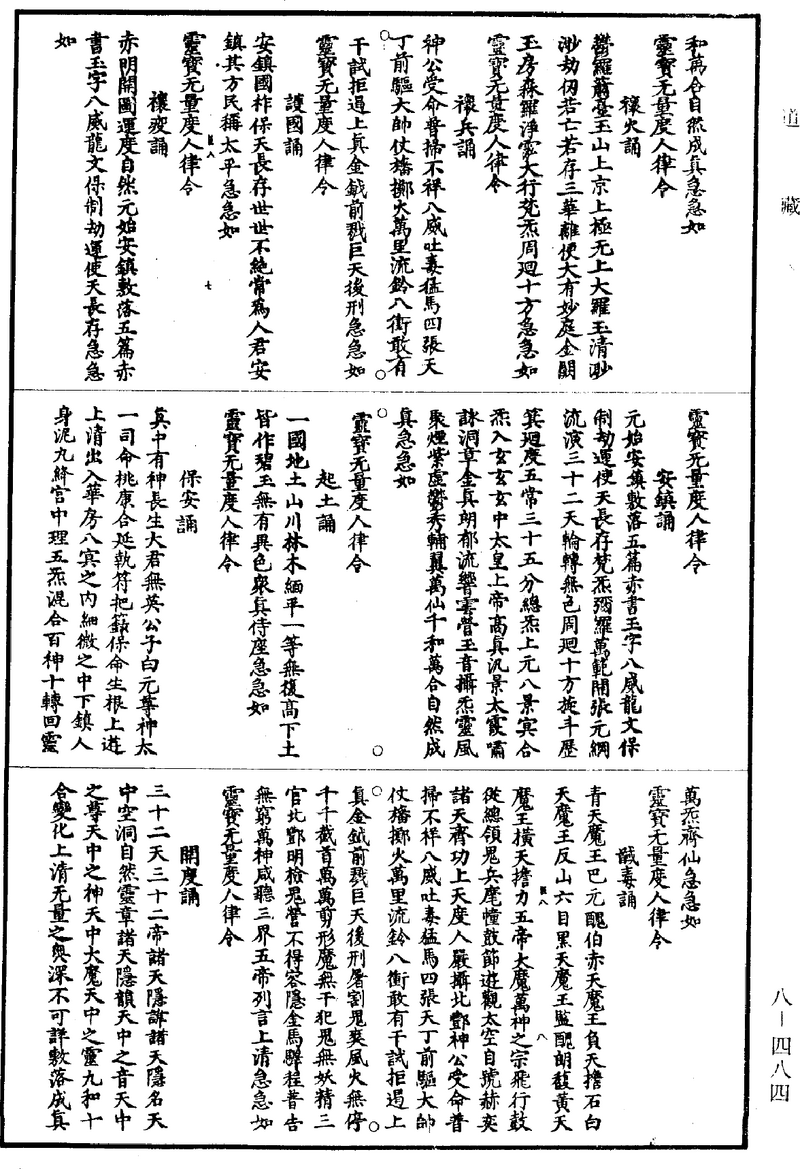 道藏
和萬合自然成真急急如
靈寶无量度人律令
禳火誦
鬱羅蕭臺玉山上京上極无上大羅玉清眇
眇劫仞若亡若存三華離便大有妙庭金闕
玉房森羅淨霐大行梵炁周迴十方急急如
靈寶无量度人律令
禳兵誦
神公受命普掃不祥八威吐毒猛馬四張天
丁前驅大帥仗旛擲火萬里流鈴八衝敢有
干試拒遏上真金鉞前戮巨天後刑急急如
靈寶无量度人律令
護國誦
安鎮國祚保天長存世世不絶常爲人君安
鎮其方民稱太平急急如
靈寶无量度人律令
七
禳疫誦
赤明開圖運度自然元始安鎮敷落五篇赤
書玉字八威龍文保制劫運使天長存急急
如
靈寶无量度人律令
安鎮誦
元始安鎮敷落五篇赤書玉字八威龍文保
制劫運使天長存梵炁彌羅萬範開張元綱
流演三十二天輪轉無色周迴十方旋斗歷
箕迴度五常三十五分總炁上元八景冥合
炁入玄玄玄中太皇上帝高真汎景太霞嘯
詠洞章金真朗郁流響雲營玉音攝炁靈風
聚煙紫虛鬱秀輔翼萬仙千和萬合自然成
真急急如
靈寶无量度人律令
起土誦
一國地土山川林木緬平一等無復高下土
皆作碧玉無有異色衆真侍座急急如
靈寶无量度人律令
保安誦
真中有神長生大君無英公子白元尊神太
一司命桃康合延執符把籙保命生根上遊
上清出入華房八冥之内細微之中下鎮人
身泥丸絳宮中理五炁混合百神十轉回靈
萬炁齊仙急急如
靈寶无量度人律令
馘毒誦
青天魔王巴元醜伯赤天魔王負天擔石白
天魔王反山六目黑天魔王監醜朗馥黄天
魔王橫天擔力五帝大魔萬神之宗飛行鼓
從總領鬼兵麾幢鼓節遊觀太空自號赫奕
諸天齊功上天度人嚴攝北酆神公受命普
掃不祥八威吐毒猛馬四張天丁前驅大帥
仗旛擲火萬里流鈴八衝敢有干試拒遏上
真金鉞前戮巨天後刑屠割鬼爽風火無停
千千截首萬萬剪形魔無干犯鬼無妖精三
官北酆明檢鬼營不得容隱金馬驛程普告
無窮萬神咸聽三界五帝列言上清急急如
靈寶无量度人律令
八
開度誦
三十二天三十二帝諸天隱諱諸天隱名天
中空洞自然靈章諸天隱韻天中之音天中
之尊天中之神天中大魔天中之靈九和十
合變化上清无量之奧深不可詳敷落成真
八－四八四